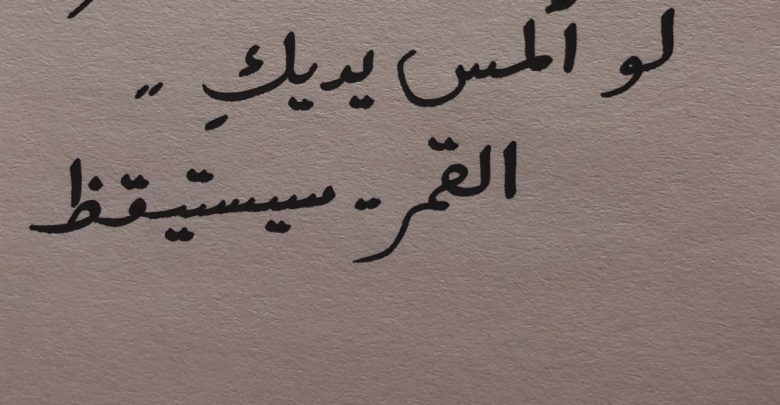 لو ألمس يديكِ "
القمر - سيستيقظ